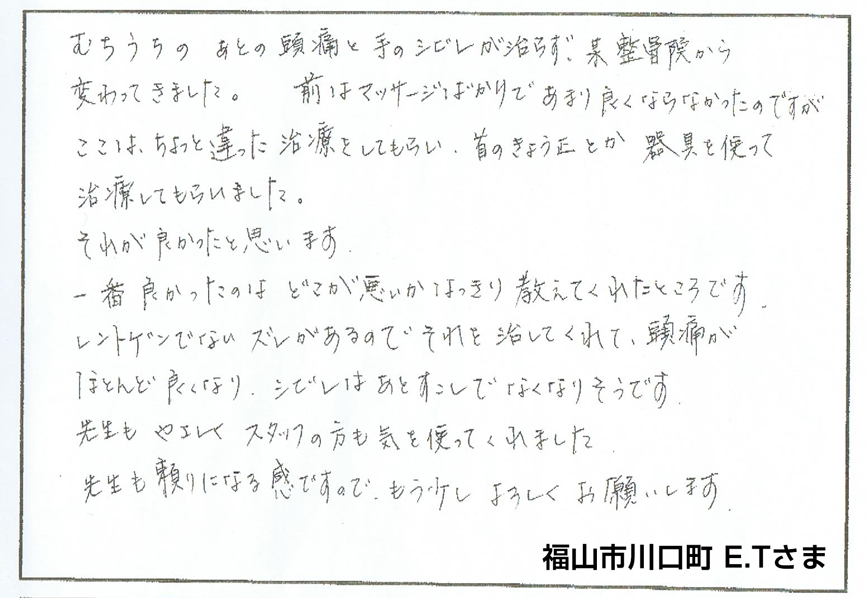 むちうちの あとの頭痛と手のシビレが治らず、某整骨院から
変わってきました。 前はマッサージばかりであまり良くならなかったのですが
ここは、ちょっと違った治療をしてもらい、首のきょう正とか 器具を使って
治療してもらいました。
それが良かったと思います。
一番良かったのは どこが悪いかはっきり教えてくれたところです。
レントゲンでない ズレがあるのでそれを治してくれて、頭痛が
ほとんど良くなり、シビレはあとすこしでなくなりそうです。
先生も やさしく スタッフの方も気を使ってくれました
先生も頼りになる感じですので、もう少し よろしくお願いします。
福山市川口町 E.Tさま